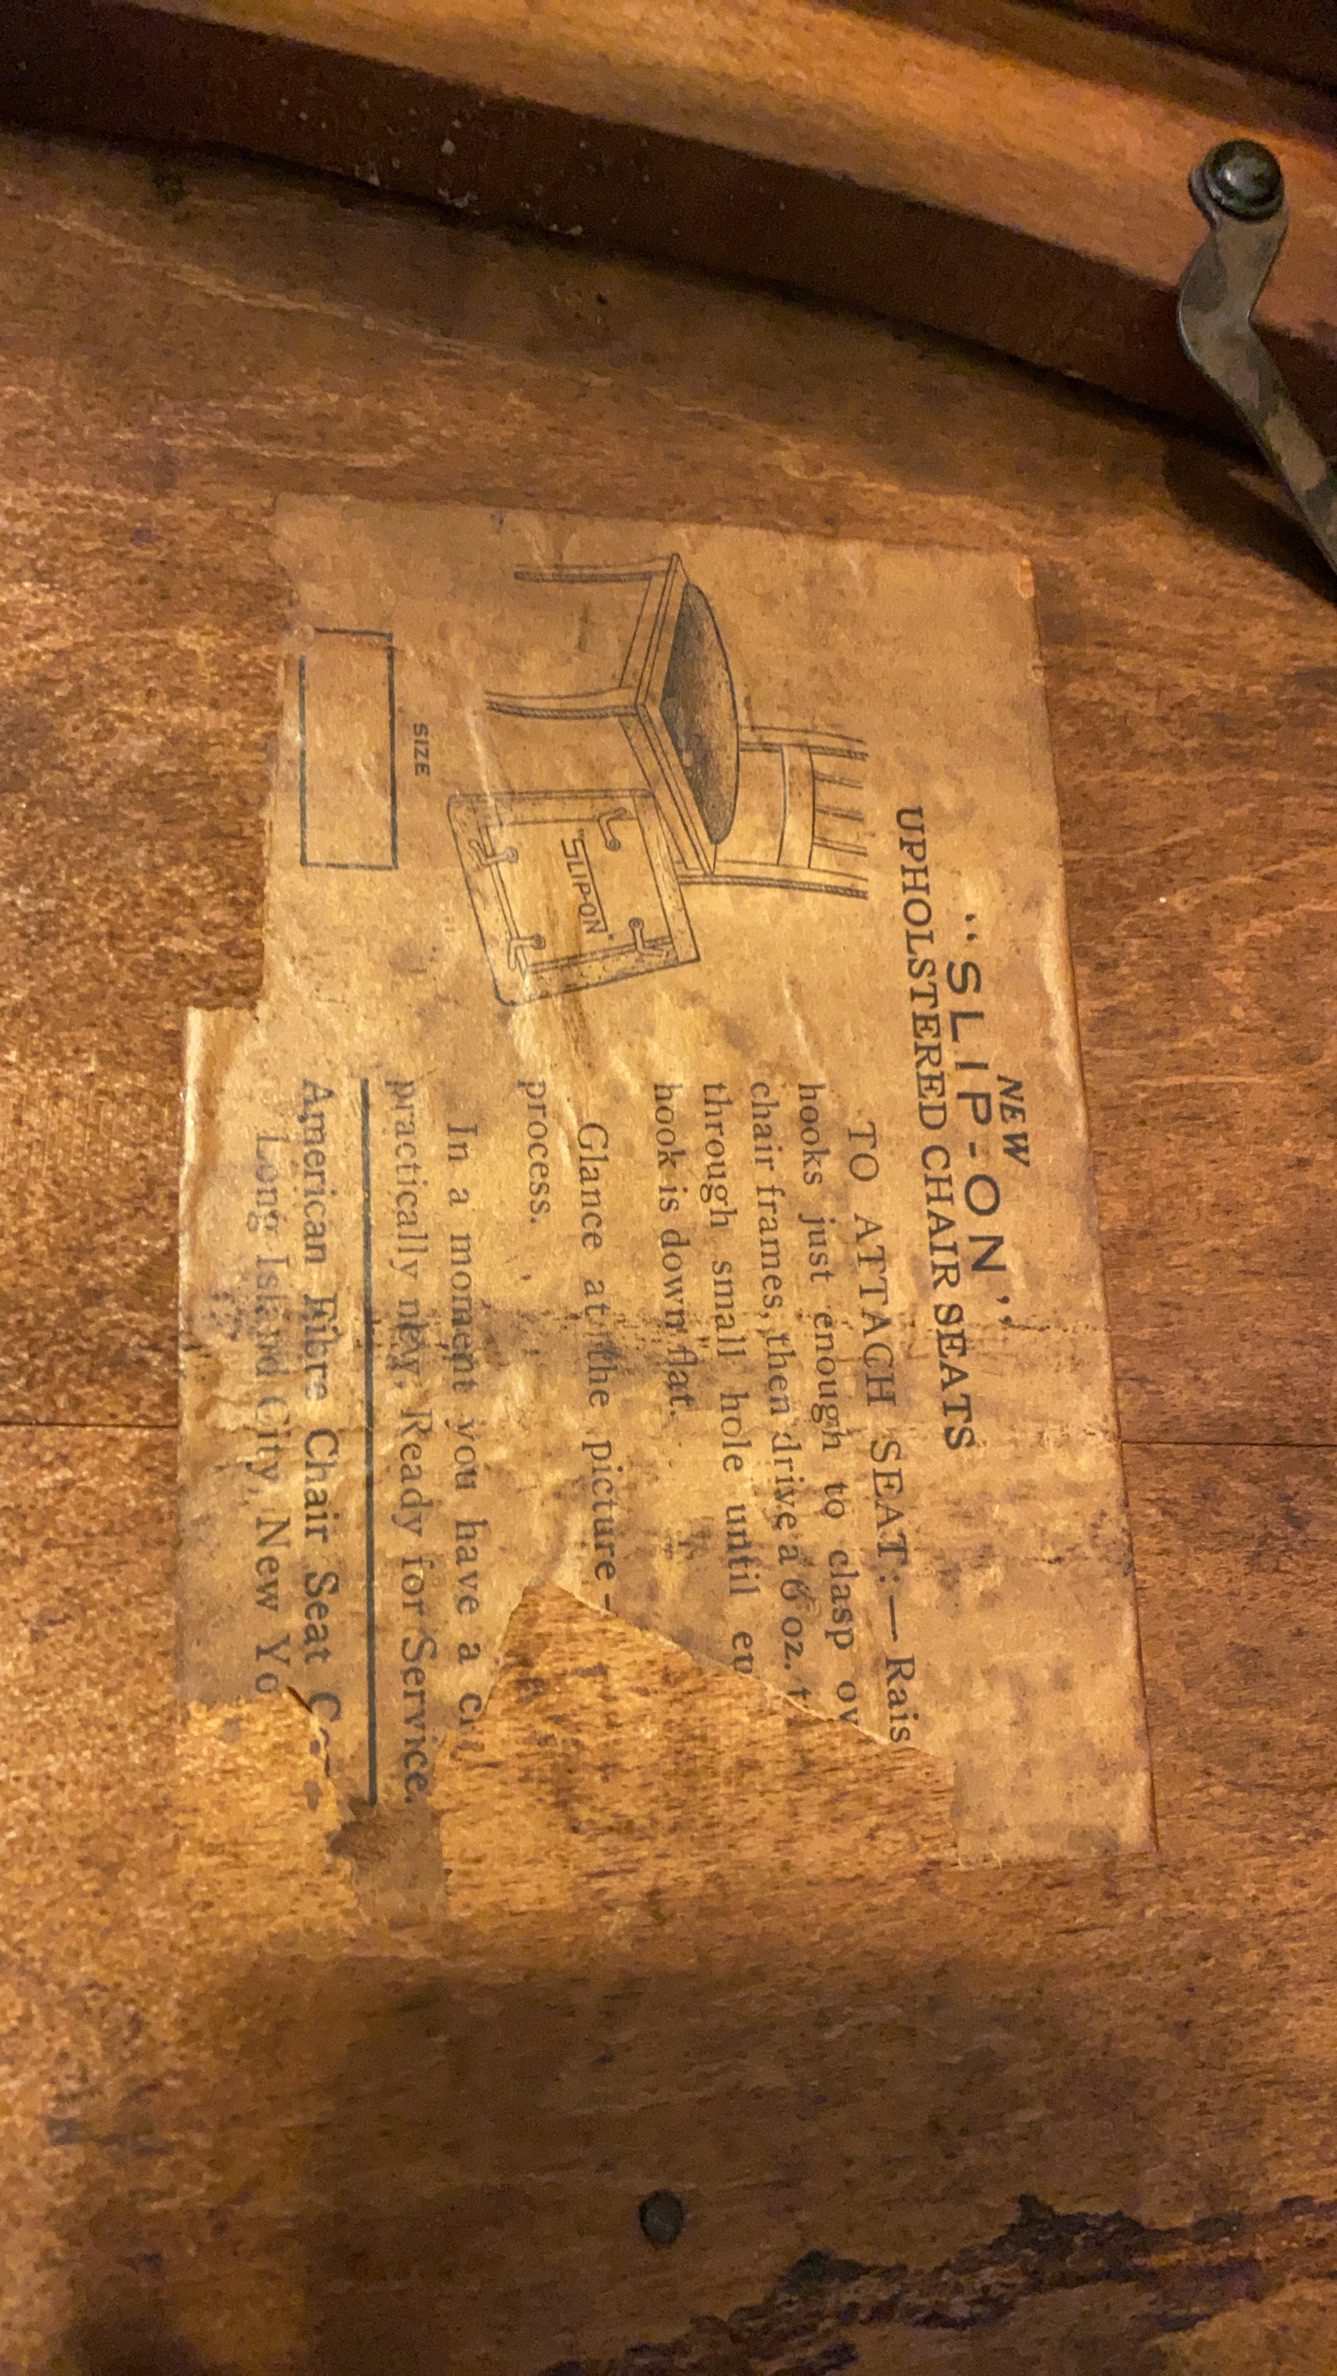 NEW
"SLIP-ON"
UPHOLSTERED CHAIR SEATS
TO ATTACH SEAT:— Rais
hooks just enough to clasp ov
chair frames, then drive a 6 oz. t
through small hole until en
hook is down flat.
Glance at the picture -
process.
In a moment you have a
practically new, Ready for Service.
American Fibre Chair Seat
Long Island City, New Yo
"SLIP-ON"
SIZE